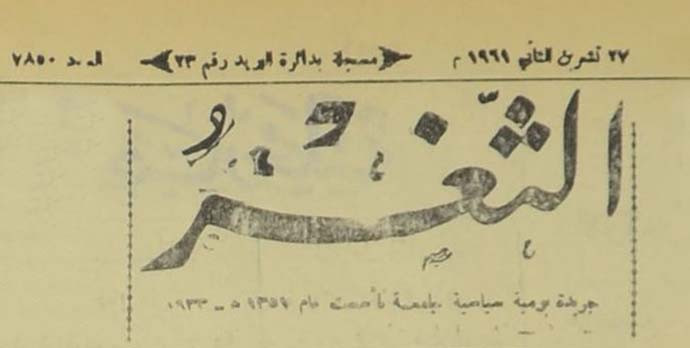 ٢٧ تشرين الثاني ١٩٦١ م مسجلة بدائرة البريد رقم ٢٣ العدد ٧٨٥٠
الثَّغْرُ
جريدة يومية سياسية جامعة تأسست عام ١٩٣٣